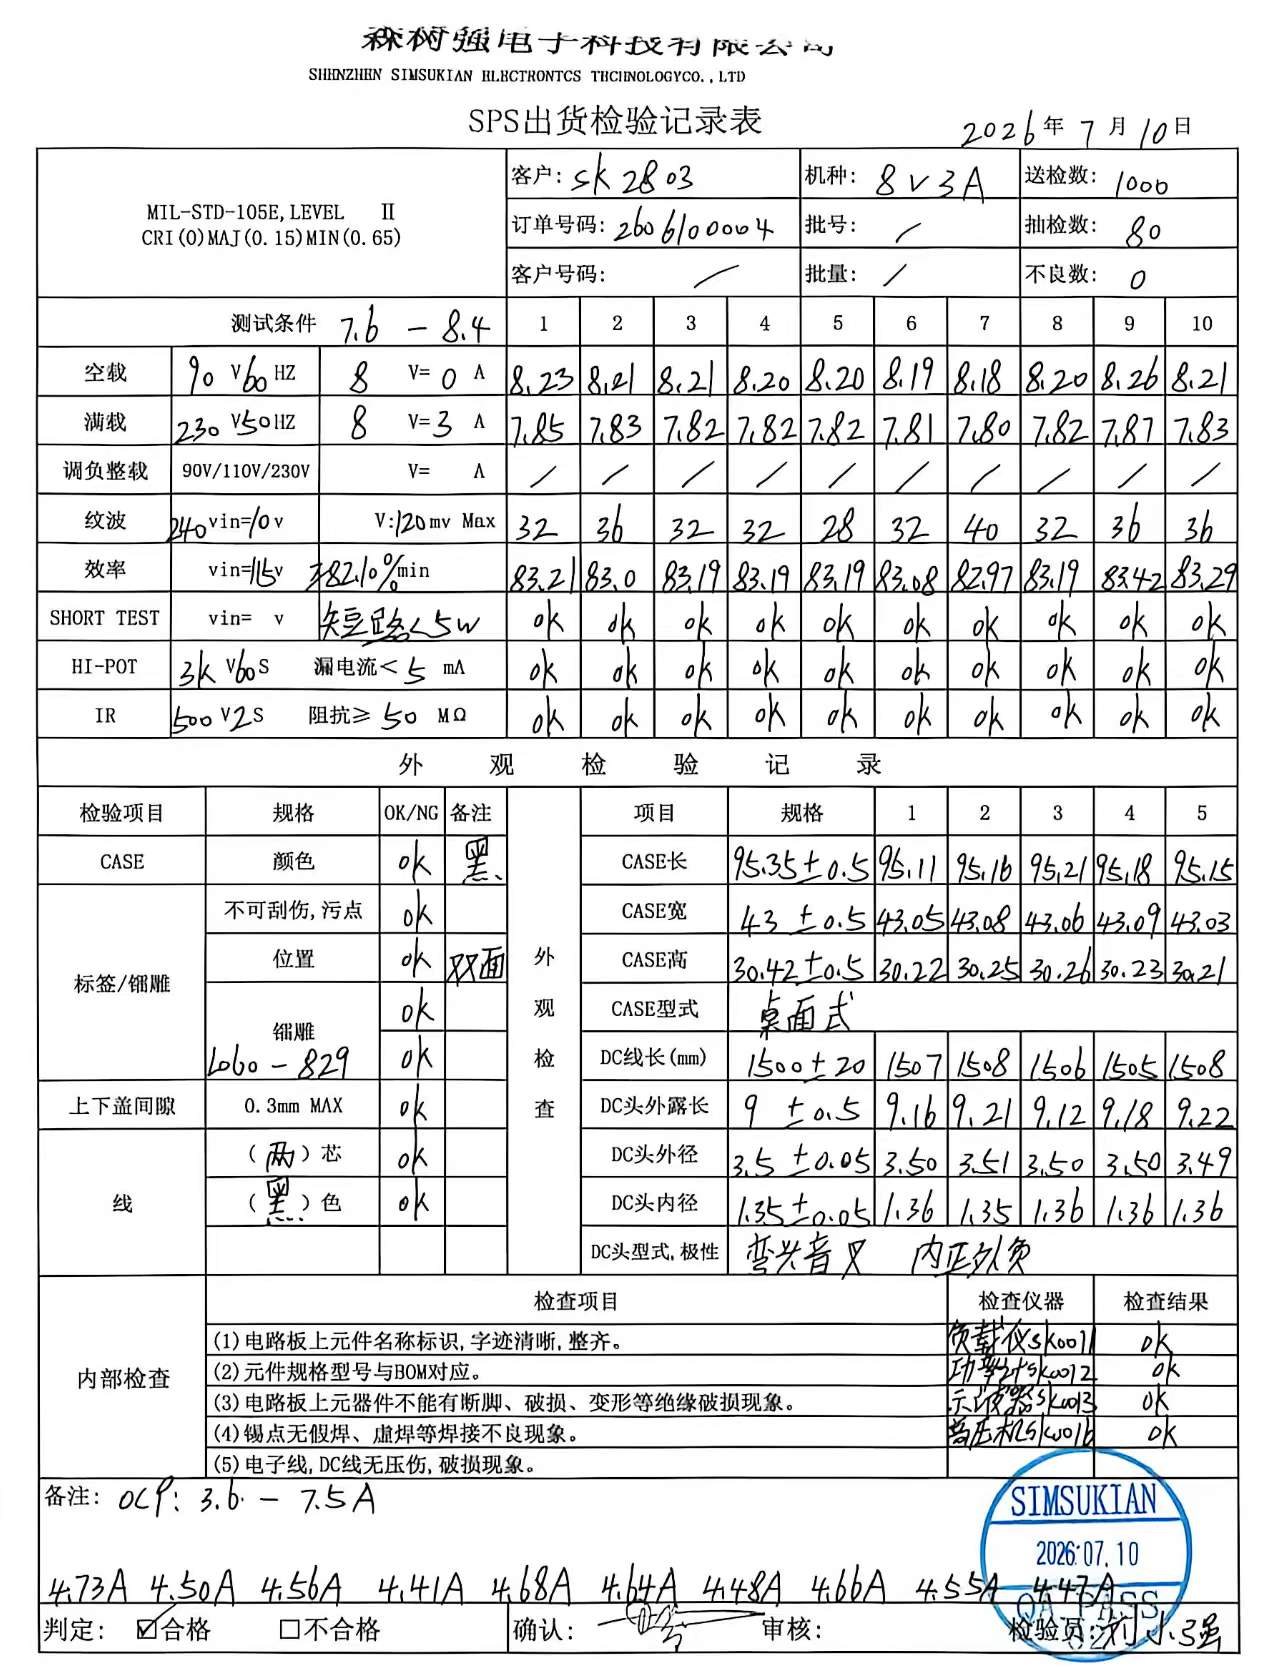 森树强电子科技有限公司
SHENZHEN SIMSUKIAN ELECTRONTCS TECHNOLOGYCO.,LTD
SPS出货检验记录表
2026年7月10日
MIL-STD-105E,LEVEL Ⅱ
CRI(0)MAJ(0.15)MIN(0.65)
客户: SK2803 机种: 8V3A 送检数: 1000
订单号码: 2606100004 批号: / 抽检数: 80
客户号码: / 批量: / 不良数: 0
测试条件 7.6 - 8.4 1 2 3 4 5 6 7 8 9 10
空载 90 V60HZ 8 V= 0 A 8.23 8.21 8.21 8.20 8.20 8.19 8.18 8.20 8.26 8.21
满载 230 V50HZ 8 V=3 A 7.85 7.83 7.82 7.82 7.82 7.81 7.80 7.82 7.87 7.83
调负整载 90V/110V/230V V= A / / / / / / / / / /
纹波 240vin=10v V:120mv Max 32 36 32 32 28 32 40 32 36 36
效率 vin=115v ≥82.10%min 83.21 83.0 83.19 83.19 83.19 83.08 82.97 83.19 83.42 83.29
SHORT TEST vin= v 短路<5W ok ok ok ok ok ok ok ok ok ok
HI-POT 3K V60S 漏电流<5 mA ok ok ok ok ok ok ok ok ok ok
IR 500V2S 阻抗≥ 50 MΩ ok ok ok ok ok ok ok ok ok ok
外观检验记录
检验项目 规格 OK/NG 备注 项目 规格 1 2 3 4 5
CASE 颜色 ok 黑 CASE长 95.35±0.5 95.11 95.16 95.21 95.18 95.15
不可刮伤,污点 ok CASE宽 43 ±0.5 43.05 43.08 43.06 43.09 43.03
标签/镭雕 位置 ok 双面 外观检查 CASE高 30.42±0.5 30.22 30.25 30.26 30.23 30.21
镭雕 ok CASE型式 桌面式
L060-829 ok DC线长(mm) 1500±20 1507 1508 1506 1505 1508
上下盖间隙 0.3mm MAX ok DC头外露长 9 ±0.5 9.16 9.21 9.12 9.18 9.22
线 (两)芯 ok DC头外径 3.5±0.05 3.50 3.51 3.50 3.50 3.49
(黑)色 ok DC头内径 1.35±0.05 1.36 1.35 1.36 1.36 1.36
DC头型式,极性 弯头音叉 内正外负
内部检查 检查项目 检查仪器 检查结果
(1)电路板上元件名称标识,字迹清晰,整齐。 负载仪SK0011 ok
(2)元件规格型号与BOM对应。 功率计SK0012 ok
(3)电路板上元器件不能有断脚、破损、变形等绝缘破损现象。 示波器SK0013 ok
(4)锡点无假焊、虚焊等焊接不良现象。 高压机SK0016 ok
(5)电子线,DC线无压伤,破损现象。
备注: OCP: 3.6 - 7.5A
SIMSUKIAN
2026.07.10
QA PASS
02
4.73A 4.50A 4.56A 4.41A 4.68A 4.64A 4.48A 4.66A 4.55A 4.47A
判定: ☑合格 □不合格 确认: 审核: 检验员:刘小强